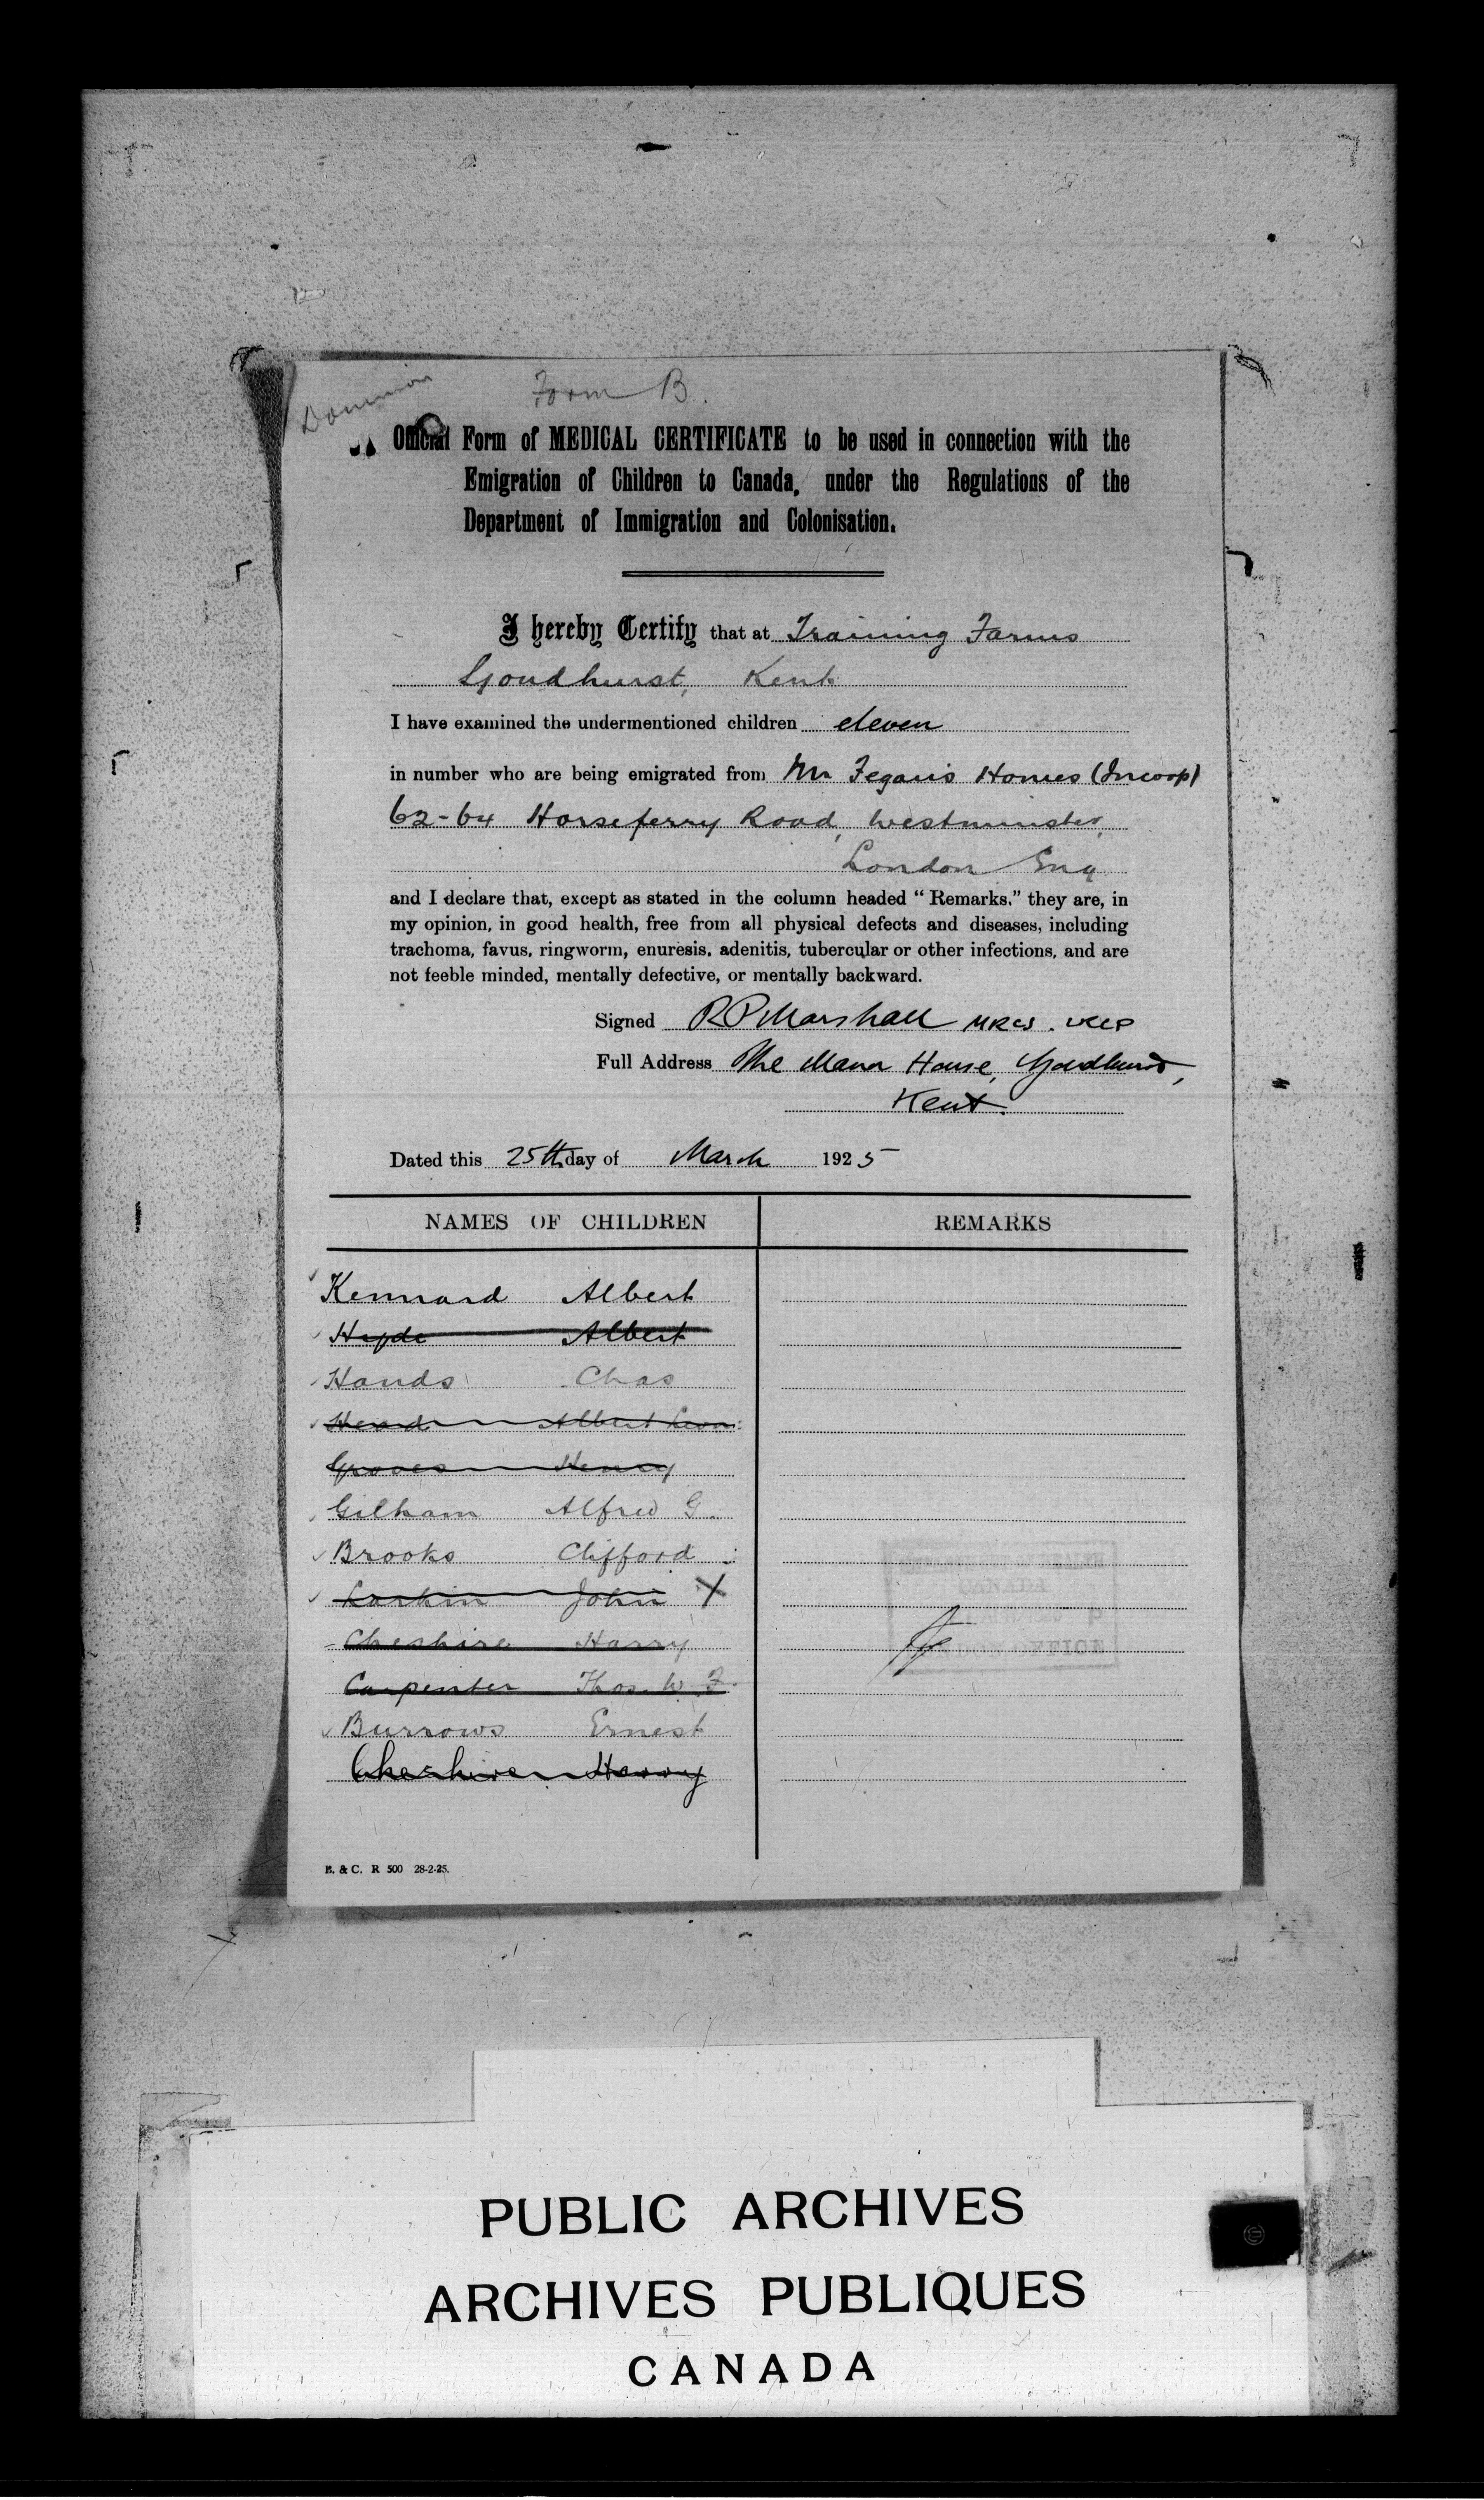 Dominion
Form B.
Official Form of MEDICAL CERTIFICATE to be used in connection with the
Emigration of Children to Canada, under the Regulations of the
Department of Immigration and Colonisation.
I hereby Certify that at Training Farms
Goudhurst, Kent
I have examined the undermentioned children eleven
in number who are being emigrated from Mr Fegan's Homes (Incorp)
62-64 Horseferry Road, Westminster,
London Eng
and I declare that, except as stated in the column headed “ Remarks,” they are, in
my opinion, in good health, free from all physical defects and diseases, including
trachoma, favus, ringworm, enuresis, adenitis, tubercular or other infections, and are
not feeble minded, mentally defective, or mentally backward.
Signed RPMarshall MRCS. LRCP
Full Address The Manor House, Goudhurst,
Kent.
Dated this 25th day of March 1925
NAMES OF CHILDREN REMARKS
Kennard Albert
Hyde Albert
Hands Chas
Head Albert Leon:
Groves Henry
Gilham Alfred G.
Brooks Clifford
Larkin John X
Cheshire Harry
Carpenter Thos. W. F.
Burrows Ernest
Cheshire Harry
CANADA
B. & C. R 500 28-2-25.
PUBLIC ARCHIVES
ARCHIVES PUBLIQUES
CANADA